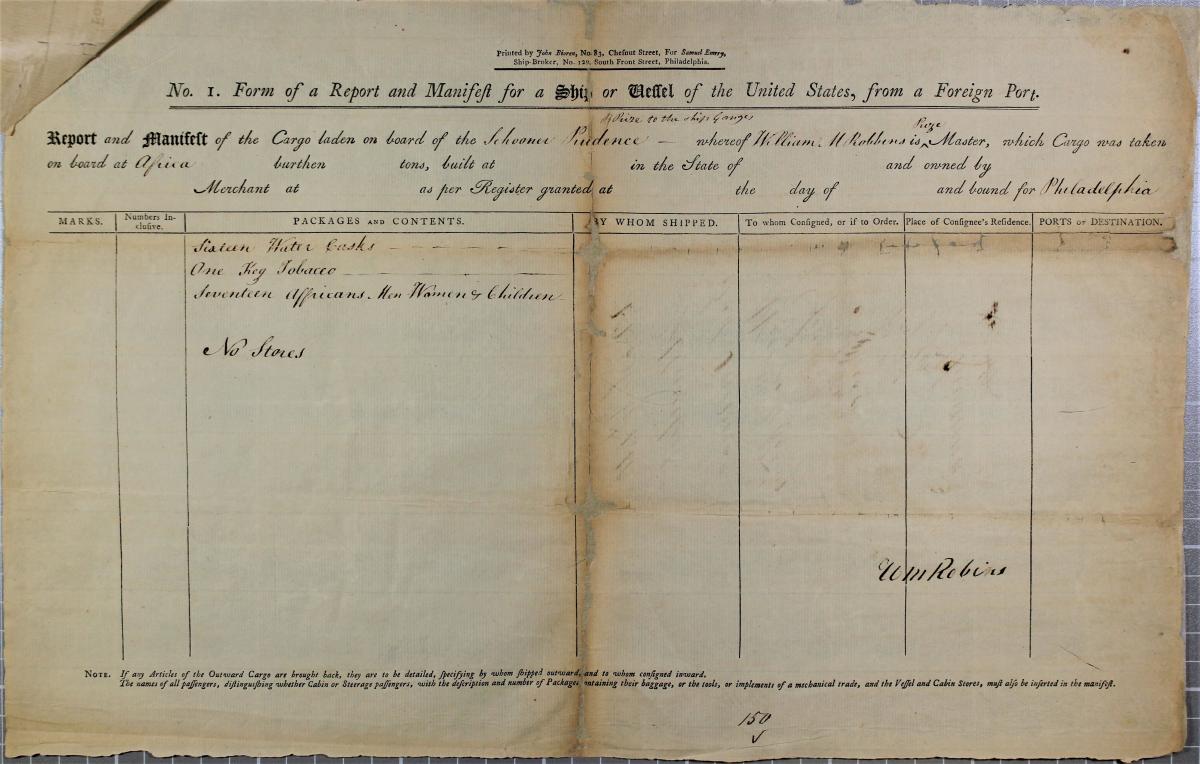 Printed by John Bioren, No. 83, Chesnut Street, For Samuel Emery,
Ship-Broker, No. 120, South Front Street, Philadelphia.
No. 1. Form of a Report and Manifest for a Ship or Vessel of the United States, from a Foreign Port.
a Prize to the ship Ganges
Prize
Report and Manifest of the Cargo laden on board of the Schooner Prudence — whereof William M Robbins is Master, which Cargo was taken
on board at Africa burthen tons, built at in the State of and owned by
Merchant at as per Register granted at the day of and bound for Philadelphia
MARKS. Numbers Inclusive. PACKAGES AND CONTENTS. BY WHOM SHIPPED. To whom Consigned, or if to Order. Place of Consignee's Residence. PORTS OF DESTINATION.
Sixteen Water Casks
One Keg Tobacco
Seventeen Affricans. Men Women & Children
No Stores
Wm Robins
NOTE. If any Articles of the Outward Cargo are brought back, they are to be detailed, specifying by whom shipped outward, and to whom consigned inward.
The names of all passengers, distinguishing whether Cabin or Steerage passengers, with the description and number of Packages containing their baggage, or the tools, or implements of a mechanical trade, and the Vessel and Cabin Stores, must also be inserted in the manifest.
150